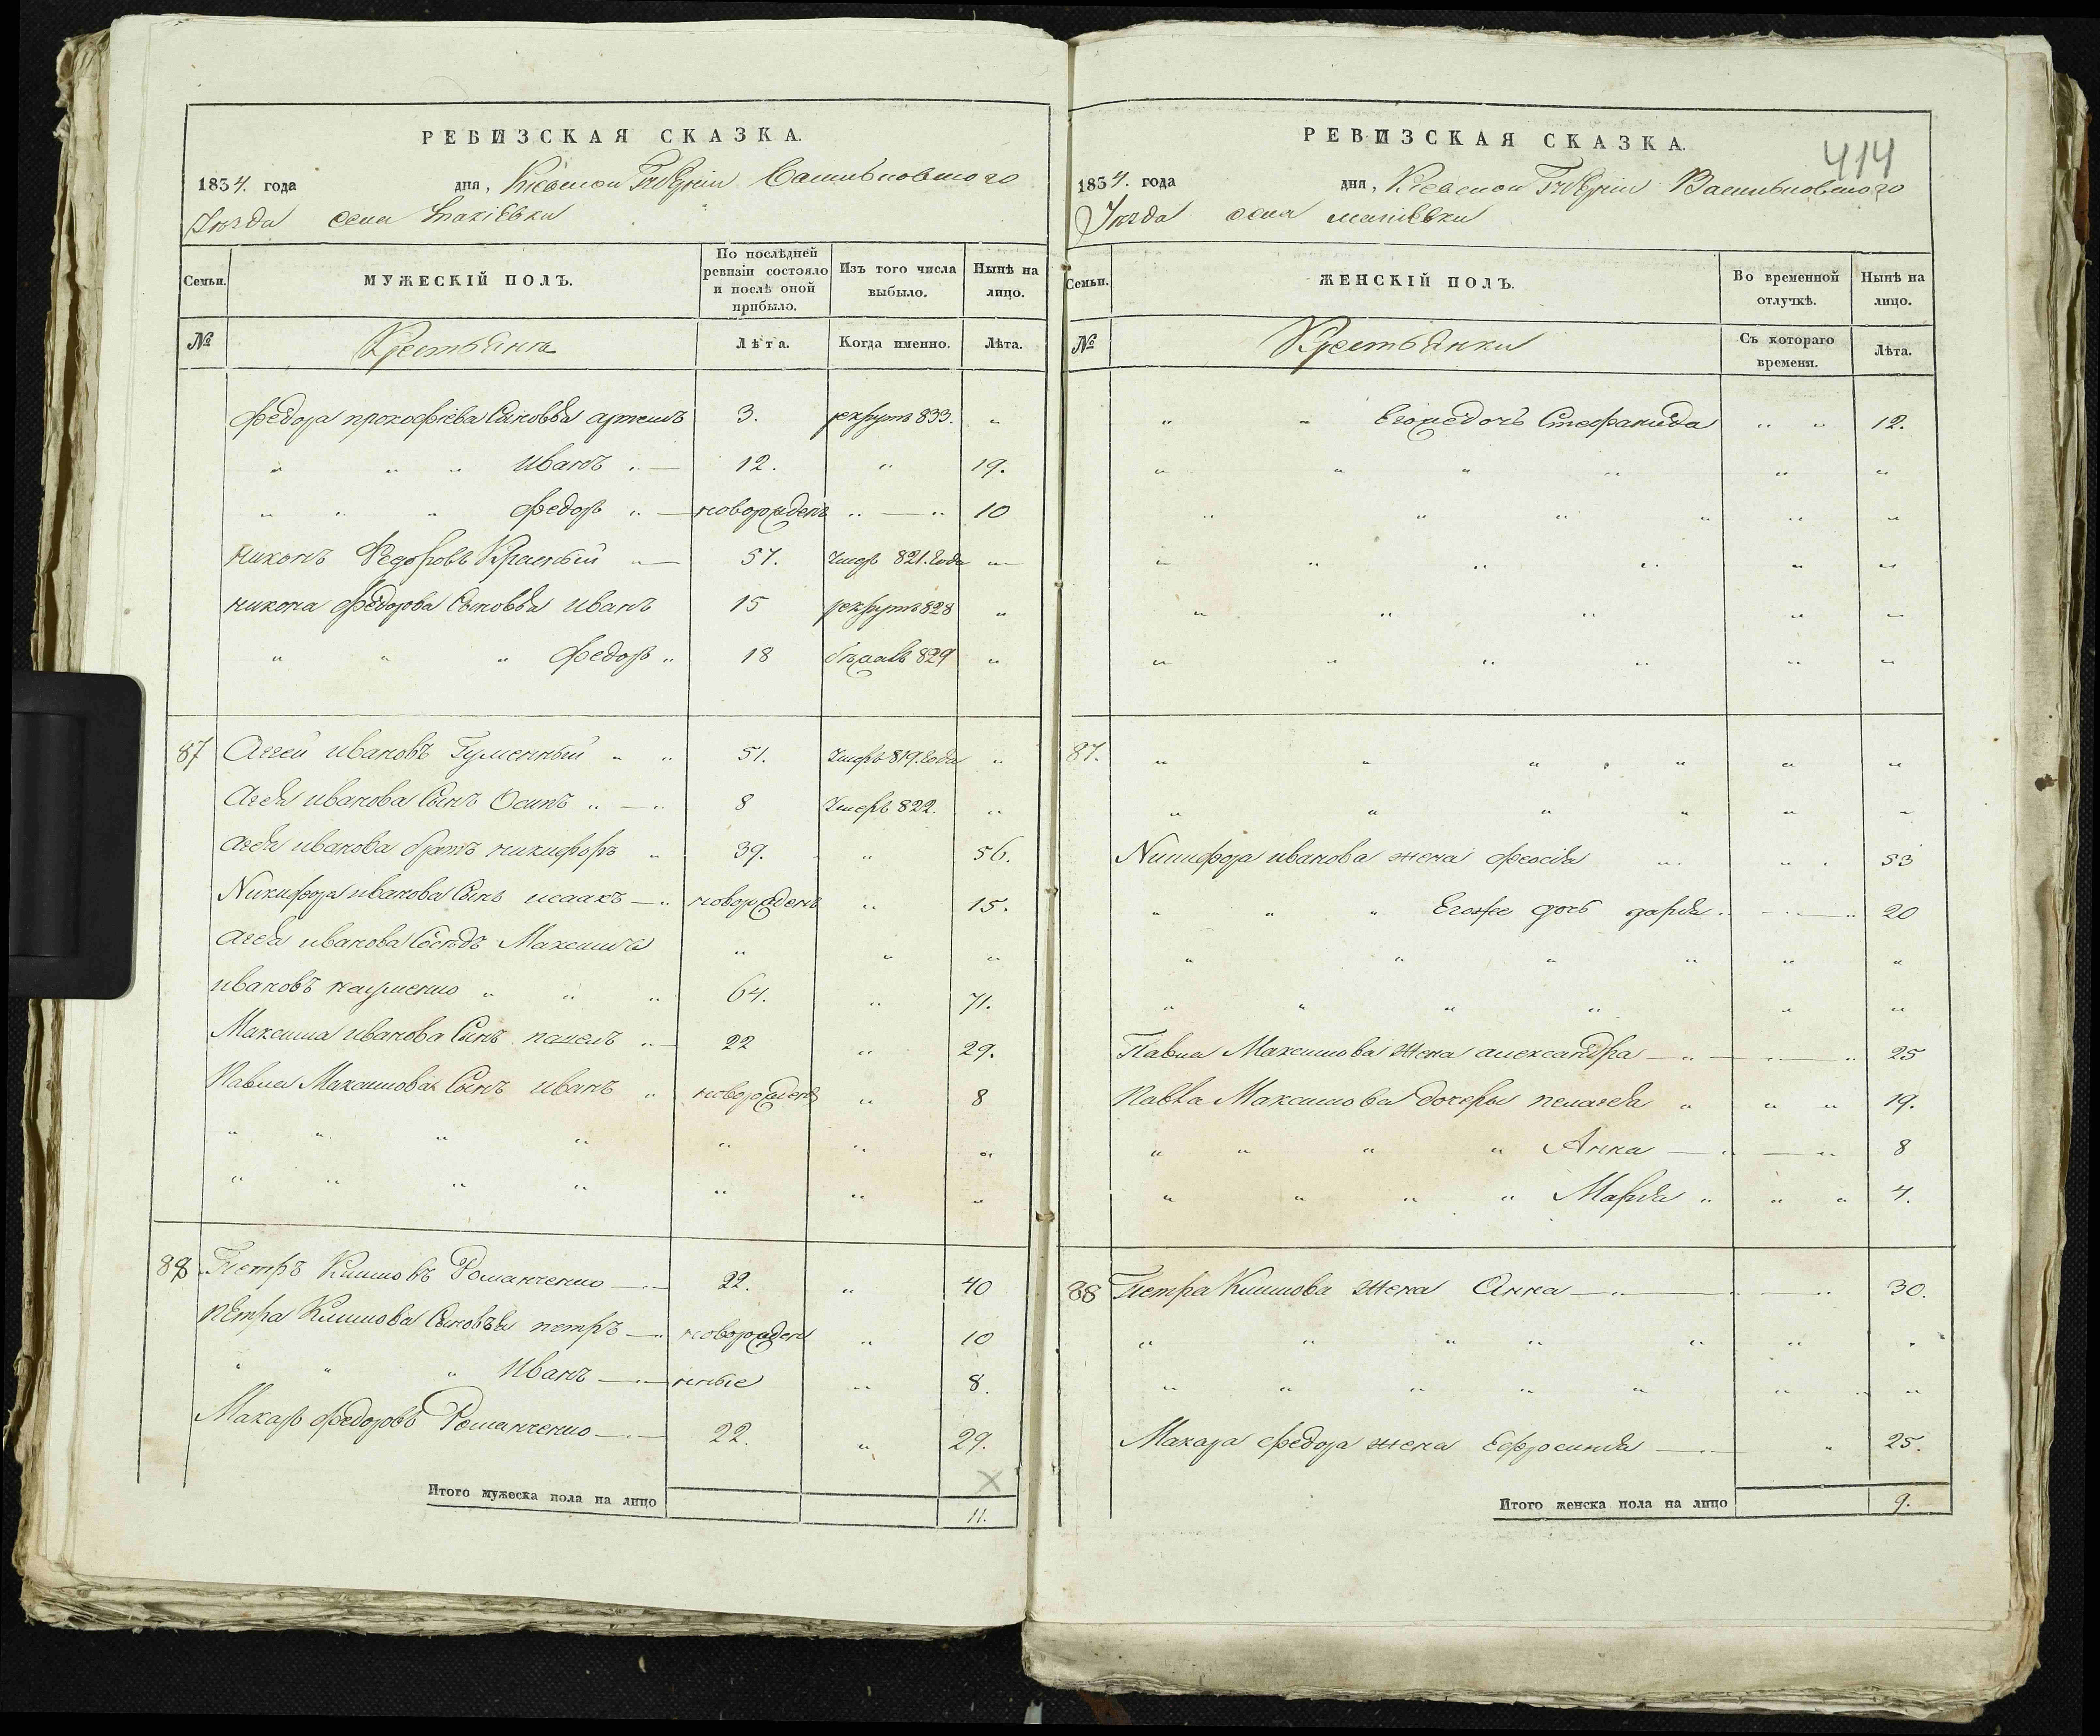 РЕВИЗСКАЯ СКАЗКА.
1834. года дня, Кіевской Губерніи Васильковского
Уезда села Макіевки
Семьи. МУЖЕСКІЙ ПОЛЪ. По послѣдней ревизіи состояло и послѣ оной прибыло. Изъ того числа выбыло. Нынѣ на лицо.
№ Крестьянъ Лѣта. Когда именно. Лѣта.
Федора прокофіева Сыновья артемъ 3. рекрутъ 833. "
" " " Иванъ " — 12. " 19.
" " " федоръ " — новорожденъ " — " 10
никонъ Федоровъ " — 57. Умеръ 821. Года " —
никона федорова Сыновья иванъ 15 рекрутъ 828 "
" " " федоръ " 18 бежалъ 829 "
87 Аггей ивановъ Гуменный " " 51. Умеръ 819. Года "
Агея иванова Сынъ Осипъ " — " 8 Умеръ 822. "
агея иванова братъ никифоръ " 39. " 56.
Никифора иванова Сынъ исаакъ — " новорожденъ " 15.
агея иванова Соседъ Максимъ " " "
ивановъ " " " 64. " 71.
Максима иванова Сынъ павелъ " — 22 " 29.
Павла Максимова Сынъ иванъ " новорожденъ " 8
" " " " " " "
" " " " " " "
88 Петръ Климовъ Романченко — " — 22. " 40
петра Климова Сыновья петръ — " новорожден " 10
" " " Иванъ — " — нные " 8.
Макаръ федоровъ Романченко — " — 22. " 29.
Итого мужеска пола на лицо 11.
414
РЕВИЗСКАЯ СКАЗКА.
1834. года дня, Кіевской Губерніи Васильковского
Уезда села макіевки
Семьи. ЖЕНСКІЙ ПОЛЪ. Во временной отлучкѣ. Нынѣ на лицо.
№ Крестьянки Съ котораго времени. Лѣта.
" " Егоже дочь Стефанида " " 12.
" " " " " "
" " " " " "
" " " " " "
" " " " "
" " " " " "
87. " " " " " "
" " " " " "
Никифора иванова жена феосія " " " 53
" " " Егоже дочь дарья " — " — " 20
" " " " " "
" " " " " "
Павла Максимова жена александра — " — " — " 25
Павла Максимова дочеры пелагея " " " 19.
" " " " Анна — " — " 8
" " " " Марья " " " 4.
88 Петра Климова жена Анна — " — " 30.
" " " " " " "
" " " " " " " "
Макара федора жена Ефросинія — " " 25.
Итого женска пола на лицо 9.